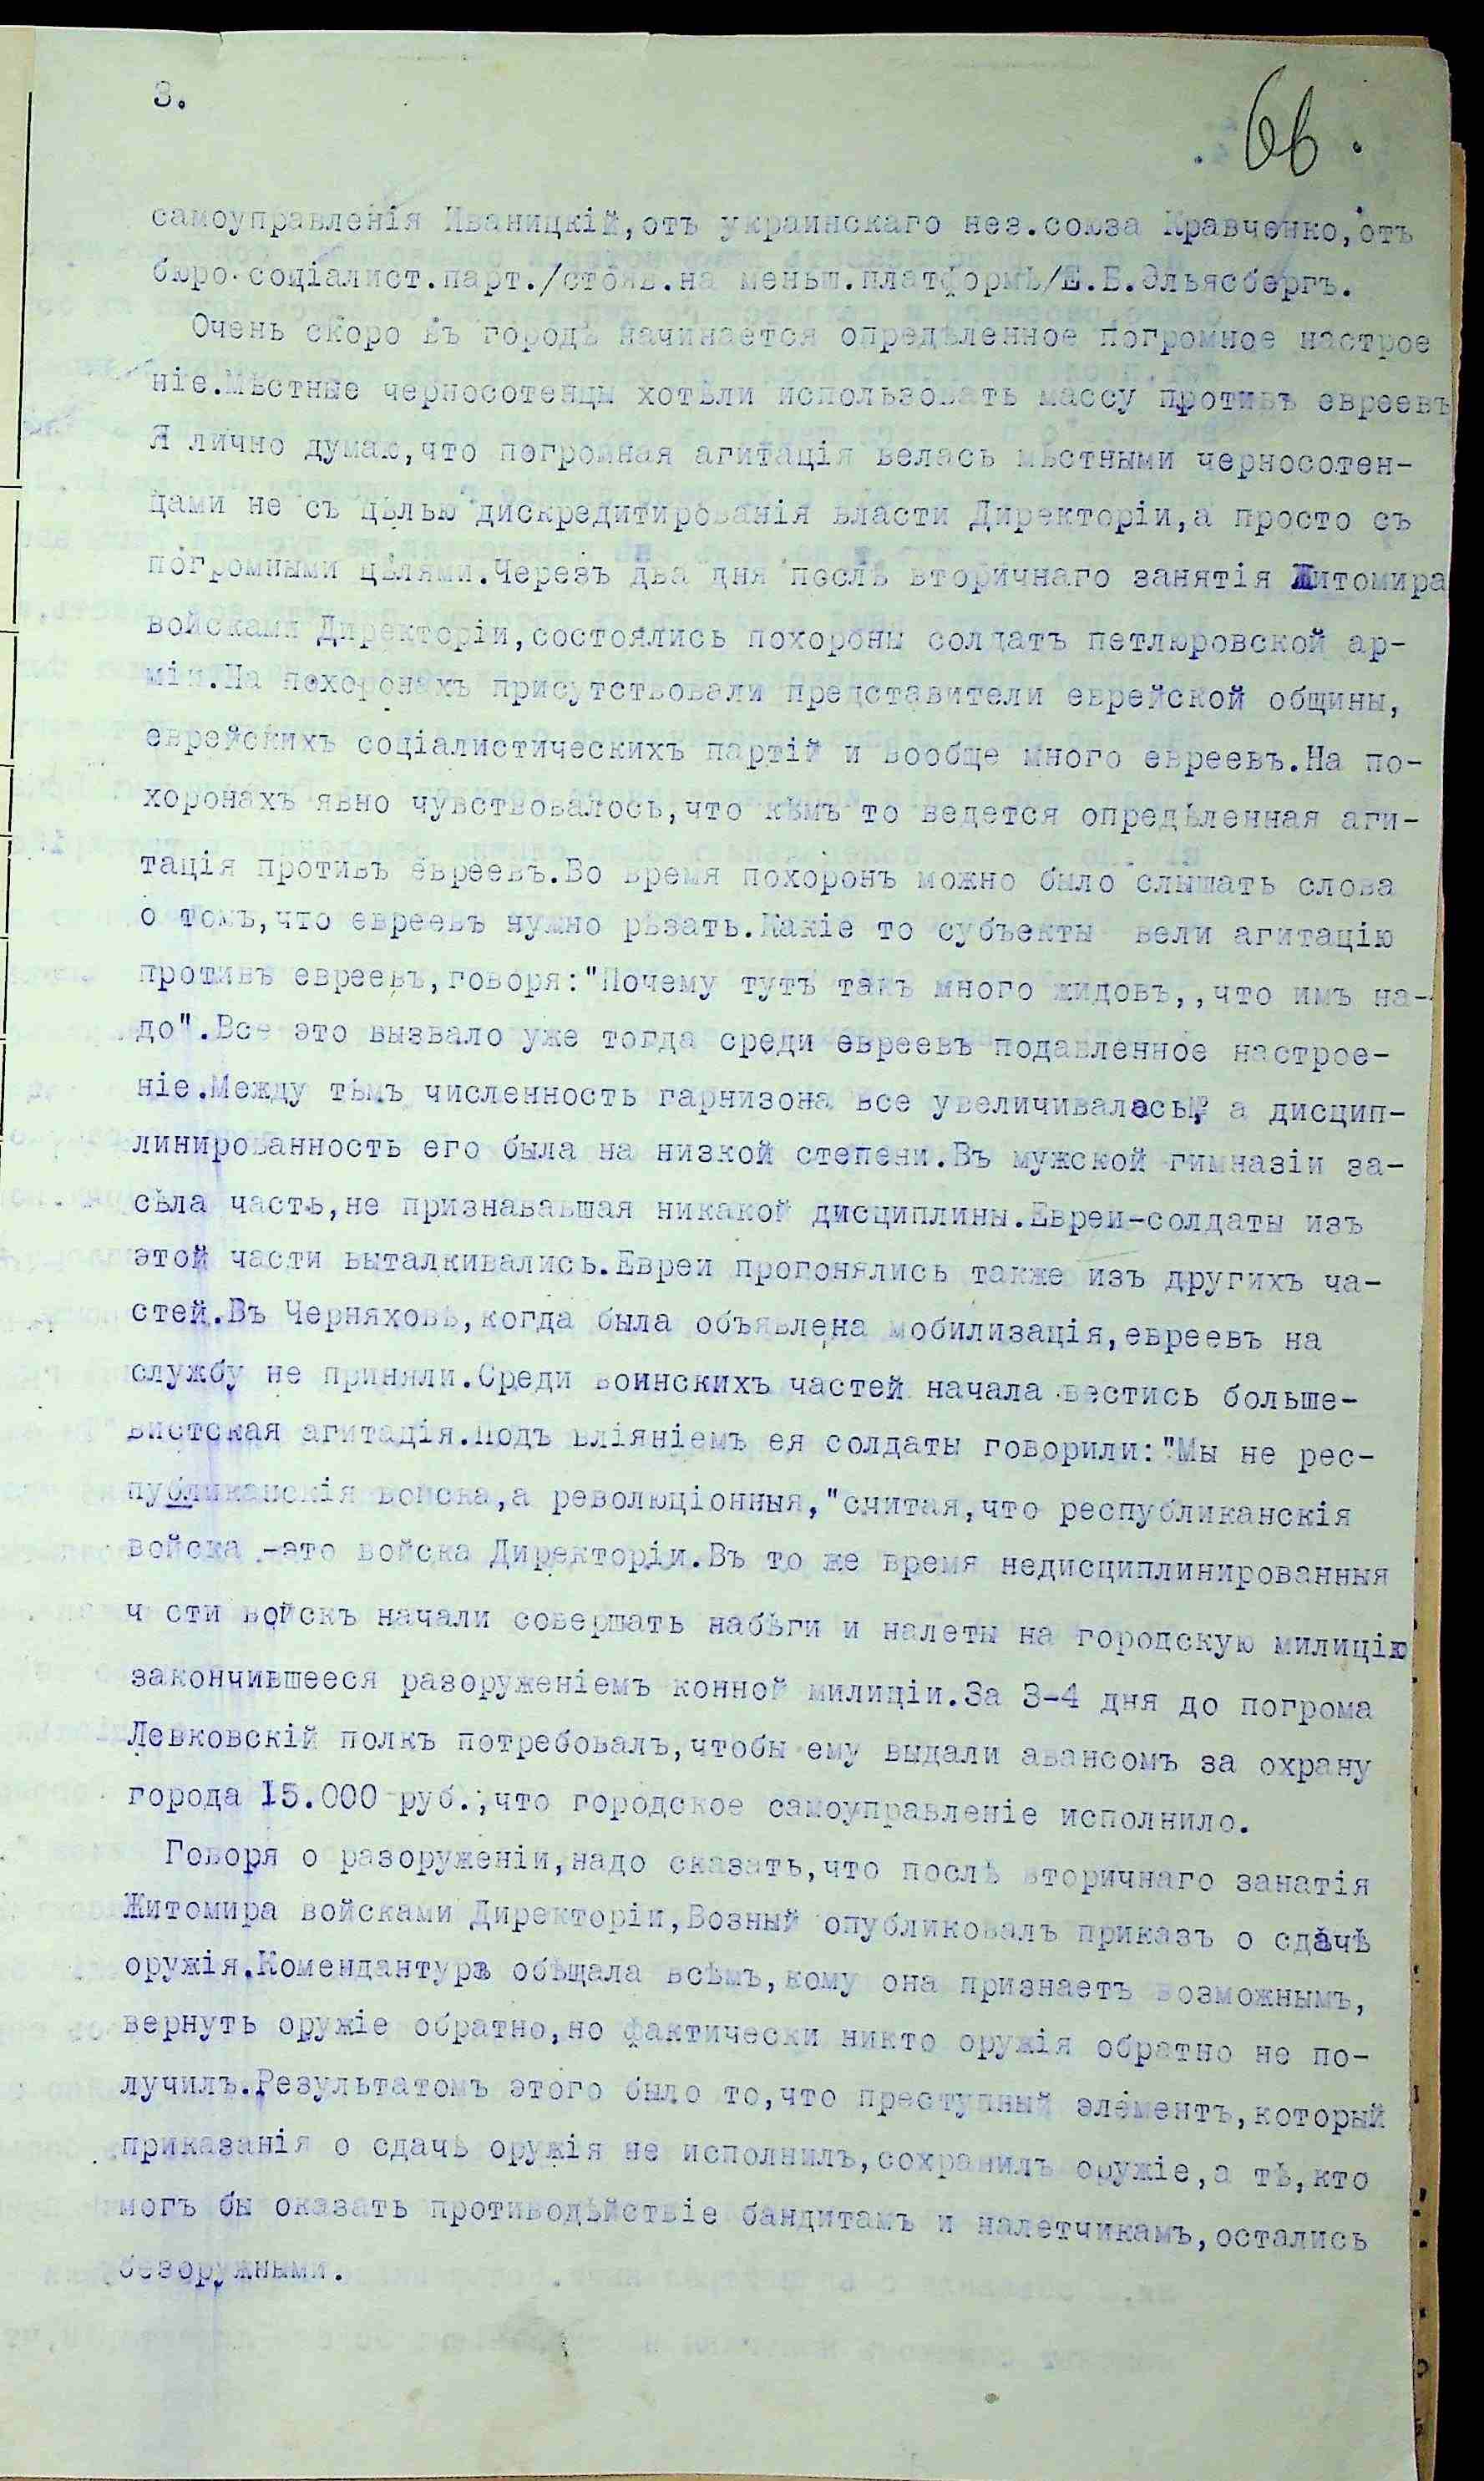 3.
66.
самоуправленія Иваницкій,отъ украинскаго нез.союза Кравченко,отъ
бюро соціалист.парт./стояв.на меньш.платформѣ/Е.Б.Эльясбергъ.
Очень скоро въ городѣ начинается опредѣленное погромное настрое
ніе.Мѣстные черносотенцы хотѣли использовать массу противъ евреевъ
Я лично думаю,что погромная агитація велась мѣстными черносотен-
цами не съ цѣлью дискредитированія власти Директоріи,а просто съ
погромными цѣлями.Черезъ два дня послѣ вторичнаго занятія Житомира
войсками Директоріи,состоялись похороны солдатъ петлюровской ар-
міи.На похоронахъ присутствовали представители еврейской общины,
еврейскихъ соціалистическихъ партій и вообще много евреевъ.На по-
хоронахъ явно чувствовалось,что кѣмъ то ведется опредѣленная аги-
тація противъ евреевъ.Во время похоронъ можно было слышать слова
о томъ,что евреевъ нужно рѣзать.Какіе то субъекты вели агитацію
противъ евреевъ,говоря:"Почему тутъ такъ много жидовъ,,что имъ на-
до".Все это вызвало уже тогда среди евреевъ подавленное настрое-
ніе.Между тѣмъ численность гарнизона все увеличивалась, а дисцип-
линированность его была на низкой степени.Въ мужской гимназіи за-
сѣла часть,не признававшая никакой дисциплины.Евреи-солдаты изъ
этой части выталкивались.Евреи прогонялись также изъ другихъ ча-
стей.Въ Черняховѣ,когда была объявлена мобилизація,евреевъ на
службу не приняли.Среди воинскихъ частей начала вестись больше-
вистская агитація.Подъ вліяніемъ ея солдаты говорили:"Мы не рес-
публиканскія войска,а революціонныя,"считая,что республиканскія
войска -это войска Директоріи.Въ то же время недисциплинированныя
ч сти войскъ начали совершать набѣги и налеты на городскую милицію
закончившееся разоруженіемъ конной милиціи.За 3-4 дня до погрома
Левковскій полкъ потребовалъ,чтобы ему выдали авансомъ за охрану
города 15.000 руб.,что городское самоуправленіе исполнило.
Говоря о разоруженіи,надо сказать,что послѣ вторичнаго занатія
Житомира войсками Директоріи,Возный опубликовалъ приказъ о сдачѣ
оружія.Комендантура обѣщала всѣмъ,кому она признаетъ возможнымъ,
вернуть оружіе обратно,но фактически никто оружія обратно не по-
лучилъ.Результатомъ этого было то,что преступный элементъ,который
приказанія о сдачѣ оружія не исполнилъ,сохранилъ оружіе,а тѣ,кто
могъ бы оказать противодѣйствіе бандитамъ и налетчикамъ,остались
безоружными.